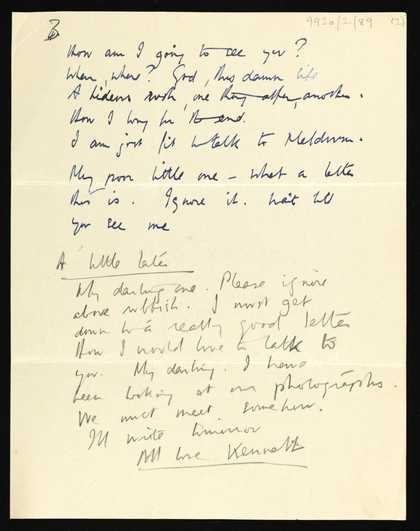 3
9920/2/89 (2)
How am I going to see you?
When, where? God, this damn life
A hideous rush, one thing after, another.
How I long for the end.
I am just fit to talk to Meldrum.
My poor little one – what a letter
this is. Ignore it. Wait till
you see me
A little later
My darling one. Please ignore
above rubbish. I must get
down to a really good letter
How I would love to talk to
you. My darling. I have
been looking at our photographs.
We must meet, somehow.
Ill write tomorrow
All love Kenneth